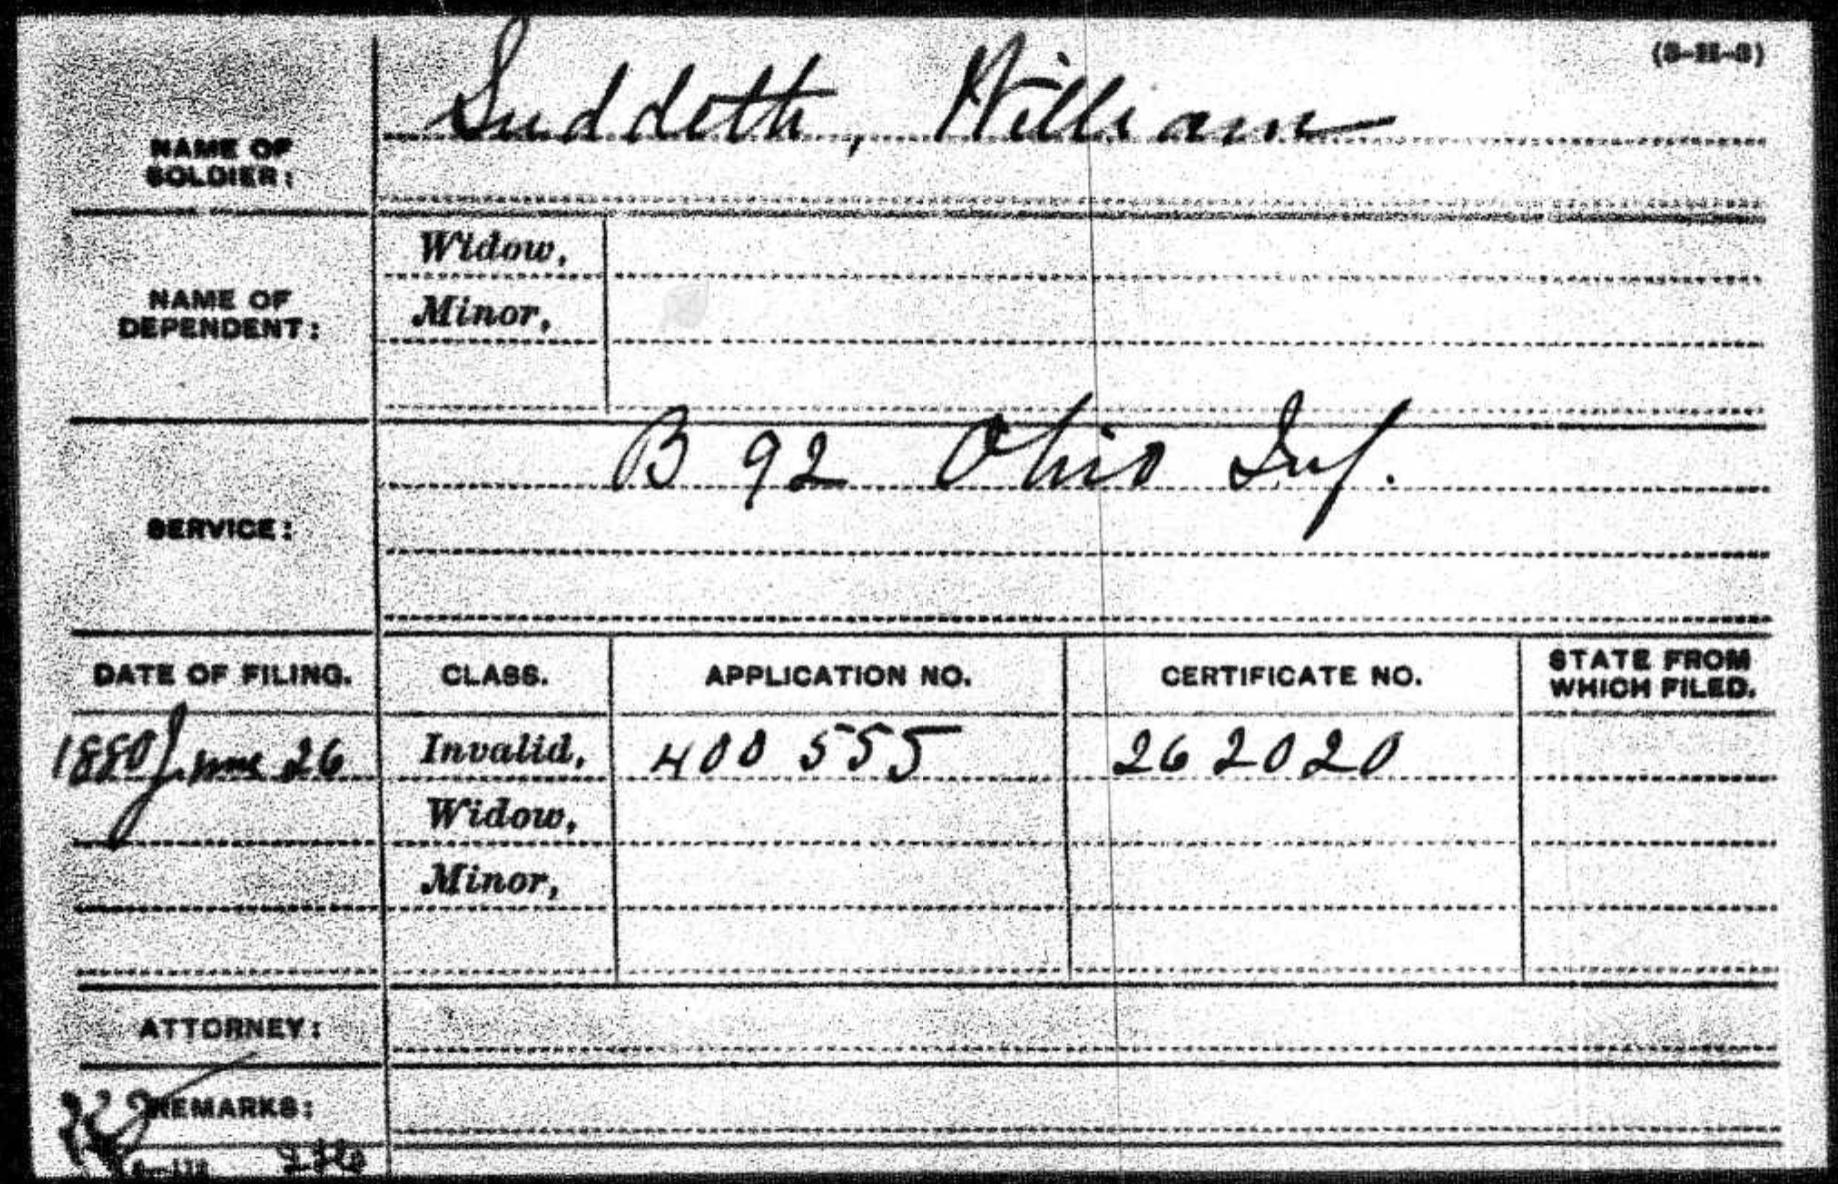 (3-H-3)
NAME OF SOLDIER: Suddeth, William
NAME OF DEPENDENT:
Widow,
Minor,
SERVICE: B 92 Ohio Inf.
DATE OF FILING. CLASS. APPLICATION NO. CERTIFICATE NO. STATE FROM WHICH FILED.
1880 June 26 Invalid, 400 555 262020
Widow,
Minor,
ATTORNEY:
REMARKS: